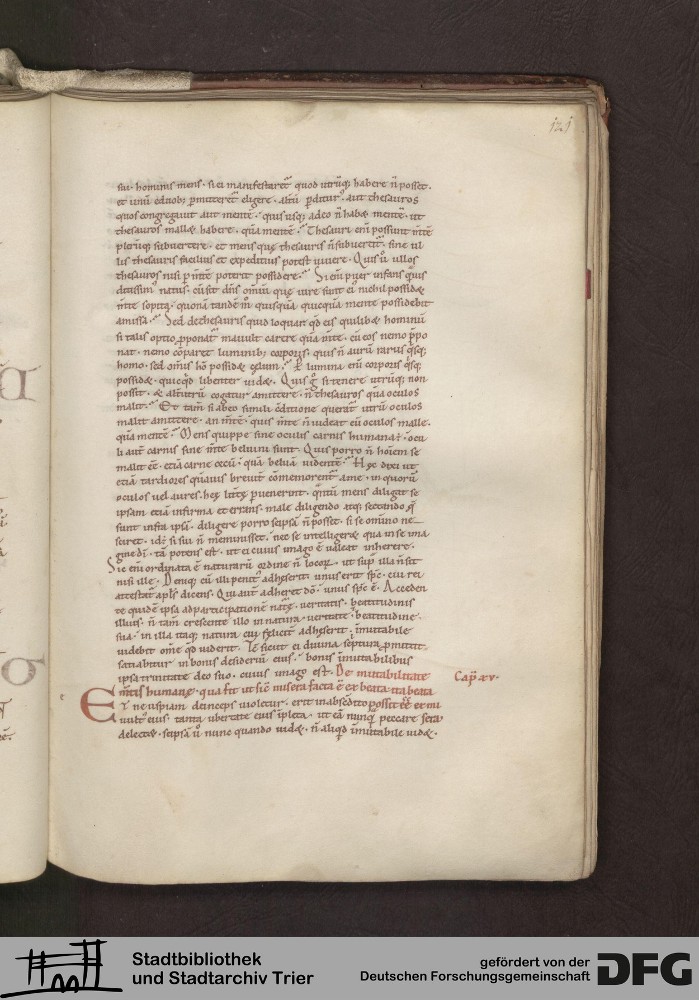 121
sui · hominis mens · si ei manifestaret᷒ quod utrūq; habere n̄ posset ·
et unū eduob; p̱mitteret᷒ eligere · alt̄ū p̱ditur᷒ · aut thesauros
quos congregauit aut mentē · quis usq; adeo n̄ habæ mentē · ut
thesauros mallæ habere · quā mentē · Thesauri eni᷒ possunt m̄tē
plerūq; subuertere · et mens quę thesauris n̄ subuertit᷒ · sine ul
lis thesauris facilius et expeditius potest uiuere · Quis ū ullos
thesauros nisi p̱ m̄tē poterit possidere · Si eni᷒ puer infans quis
ditissim᷒ natus · cū sit dn̄s omiū quę iure sunt ei᷒ nichil possidæ
m̄te sopita · quonā tandē m᷒ quisquā quicquā mente possidebit
amissa · Sed dethesauris quid loquar · qđ eis quilibæ hominū
si talis optio p̱ponat᷒ mauult carere quā m̄te · cū eos nemo p̄po
nat · nemo cōparet luminib; corporis · quis n̄ aurū rarus q̇sq;
homo · sed om̄is hō possidæ cęlum · P̱ lumina eni᷒ corporis q̇sq;
possidæ · quicq̇d libenter uidæ · Quis ḡ si tenere utrūq; non
possit · & alt̄utrū cogatur amittere · n̄ thesauros quā oculos
malit · Et tam̄ si abeo simili c̄ditione querat᷒ utrū oculos
malit amittere · an m̄tē · quis m̄te n̄ uideat eū oculos malle ·
quā mentē · Mens quippe sine oculis carnis humana ÷ · ocu
li aut᷒ carnis sine m̄te beluini sunt · Quis porro n̄ hoīem se
malit ēē · etiā carne cecū · quā beluā uidentē · Hęc dixi ut
etiā tardiores quāuis breuit᷒ cōmemorent᷒ ame · in quorū
oculos uel aures hę littę p̱uenerint · q̄ntū mens diligat se
ipsam etiā infirma et errans · male diligendo atq; sectando q̄
sunt infra ipsā · diligere porro seipsā n̄ posset · si se omīno ne
sciret · id÷ si sui n̄ meminisset · nec se intelligeræ · qua in se ima
gine dī · tā potens est · ut ei cuius imago ē ualeat inherere ·
Sic eni᷒ ordinata ē naturarū ordine n̄ locor᷒ · ut sup᷒ illā n̄ sit
nisi ille · Deniq; cū illi penit᷒ adheserit · unus erit sp̄c · cui rei
attestat᷒ apl̄s dicens · Qui aut᷒ adheret dō · unus sp̄c ē · Acceden
te quidē ipsa ad participationē nat᷒ę · ueritatis · beatitudinis
illius · n̄ tam̄ crescente illo in natura · ueritate · beatitudine ·
sua · in illa itaq; natura cū feliciter᷒ adheserit · īmutabile
uidebit om̄e qđ uiderit · Tc̄ sicut ei diuina sc̄ptura p̱mittit ·
satiabitur in bonis desideriū eius · bonis īmutabilibus
ipsa trinitate deo suo · cuius imago est · De mutabilitate
Cap̄ xv ·
m̄tis humanę · qua fit ut sic᷒ misera facta ē ex beata · ita beata
Et ne uspiam deinceps uioletur · erit in abscōdito possit ēē ex mi
uult᷒ eius · tanta ubertate eius īpleta · ut eā nunq̄ peccare sera ·
delectæ · seipsā ū nunc quando uidæ · n̄ aliq̇d īmutabile uidæ ·
Stadtbibliothek
und Stadtarchiv Trier
gefördert von der
Deutschen Forschungsgemeinschaft
DFG